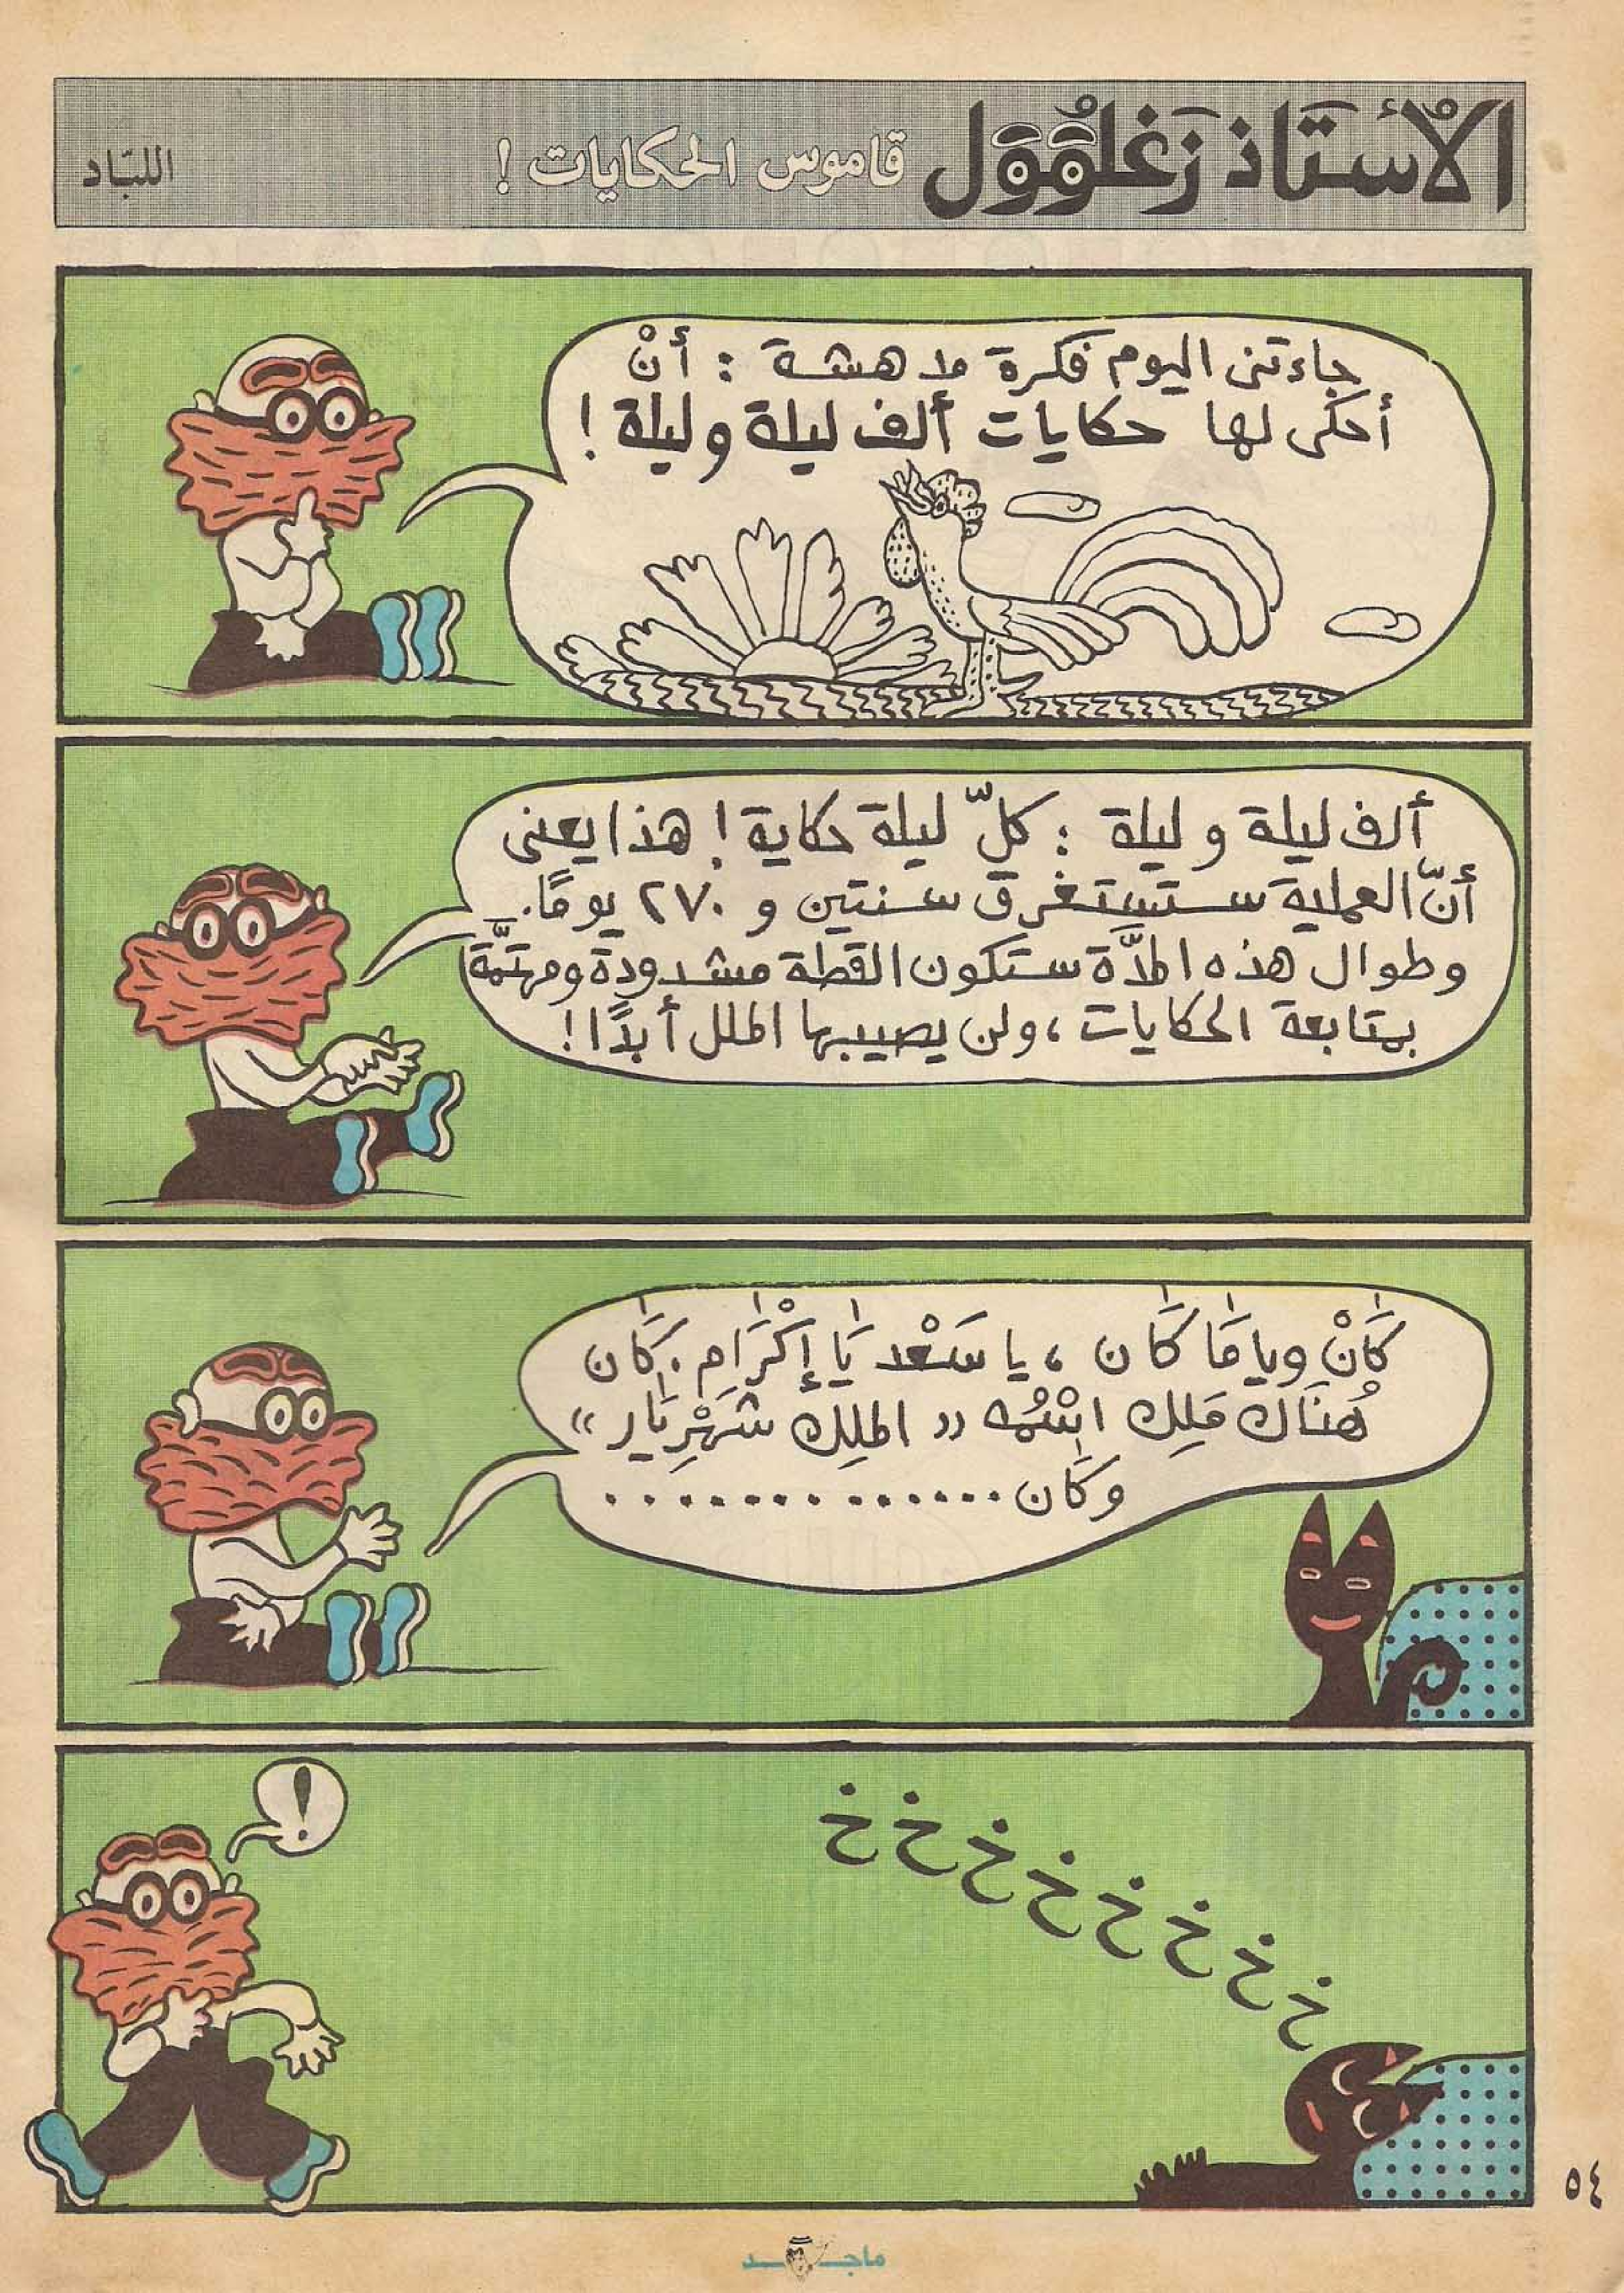 الأُسْتَاذ زَغلُوُوَل
قاموس الحكايات !
اللبّاد
جاءتنى اليوم فكرة مدهشة : أنْ
أحكى لها حكايات ألف ليلة وليلة !
ألف ليلة وليلة : كلّ ليلة حكاية ! هذا يعنى
أنّ العملية ستستغرق سنتين و ٢٧٠ يومًا.
وطوال هذه المدَّة ستكون القطة مشدودة ومهتمَّة
بمتابعة الحكايات ، ولن يصيبها الملل أبدًا !
كَانْ وياما كَان ، يا سَعْد يَا إِكْرَام . كَان
هُنَاك مَلِك اسْمُه « الملِك شَهْرِيَار »
وكَان . . . . . . . . . . . . . .
!
خ خ خ خ خ خ خ خ
٥٤
ماجد